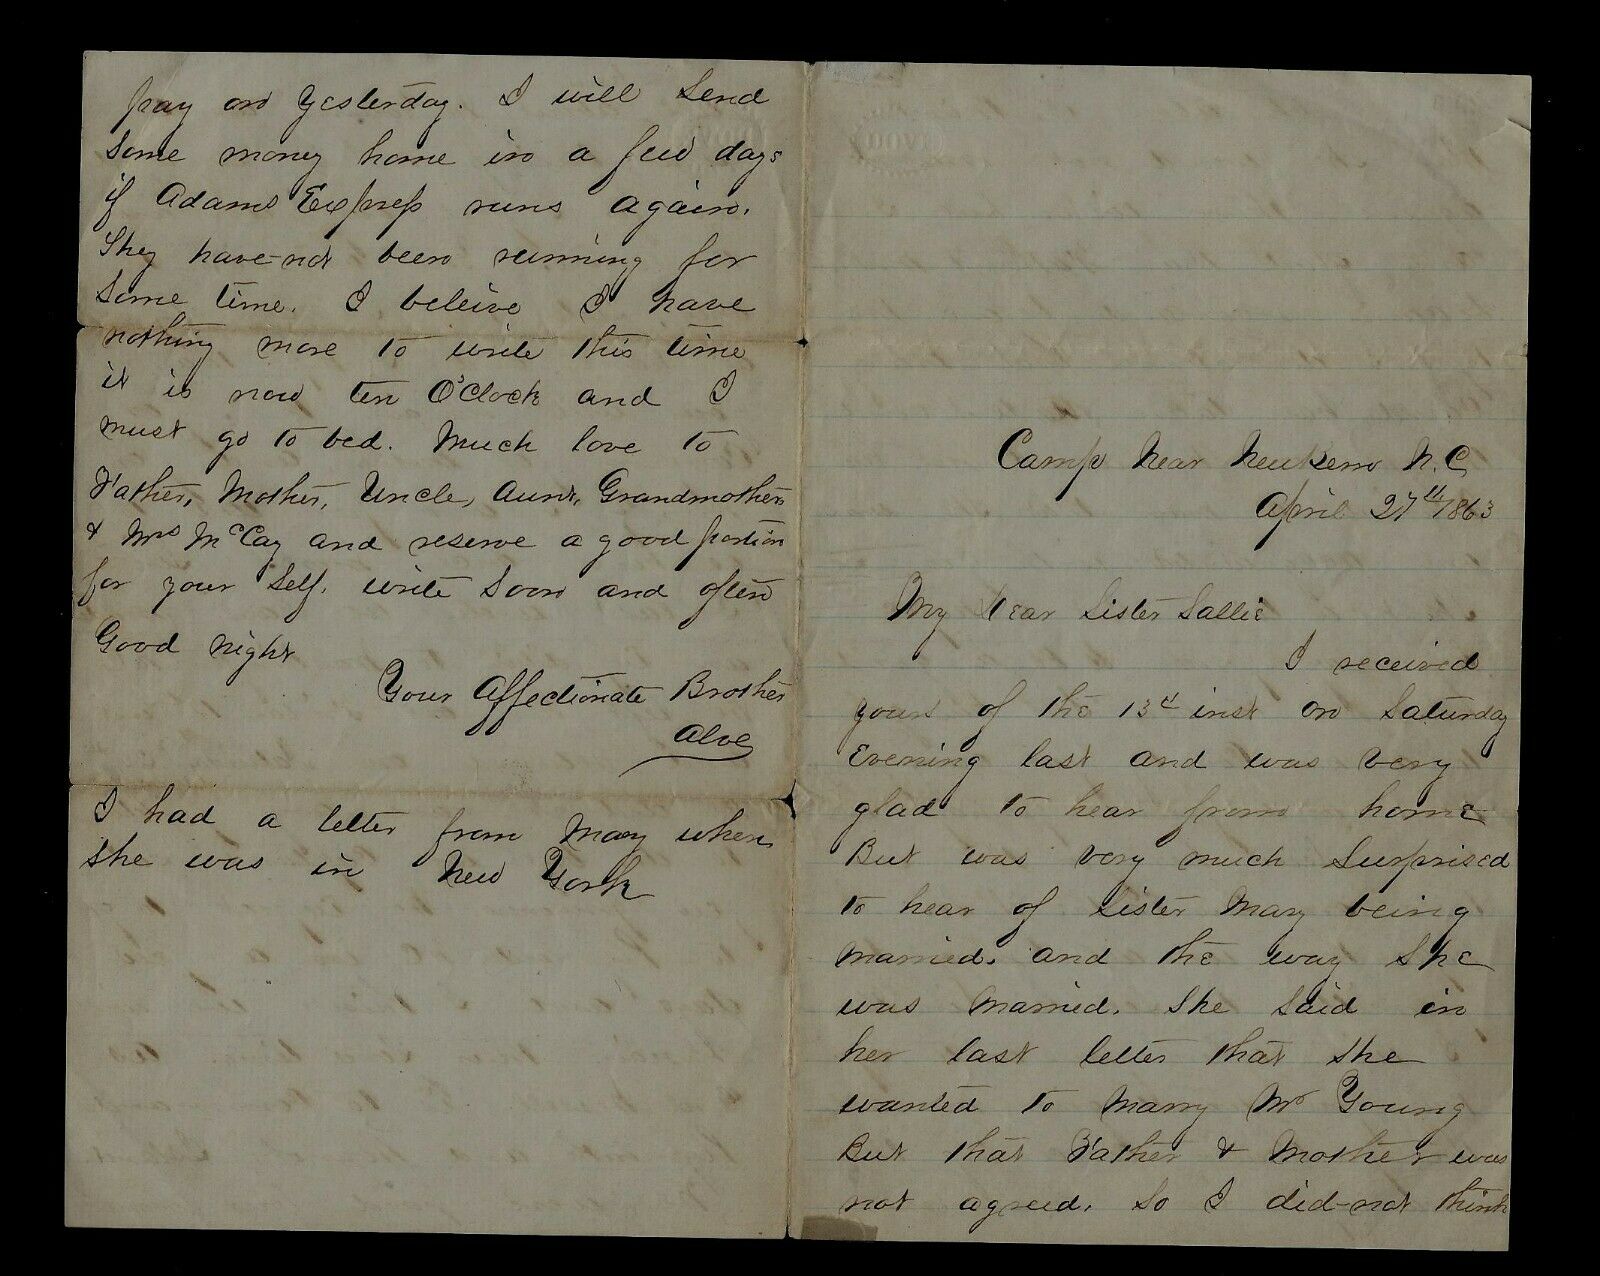 Camp Near Newbern N.C.
April 27th/1863
My Dear Sister Sallie
I received
yours of the 13th inst on Saturday
Evening last and was very
glad to hear from home
But was very much Surprised
to hear of Sister Mary being
married. and the way She
was married. She Said in
her last letter that she
wanted to marry Mr Young
But that Father & Mother was
not agreed. So I did-not think
pay on yesterday. I will Send
Some money home in a few days
if Adams Express runs again.
They have-not been running for
Some time. I beleive I have
nothing more to write this time
it is now ten O'Clock and I
must go to bed. Much love to
Father, Mother, Uncle, Aunt, Grandmother
& Mrs McCay and reserve a good portion
for your Self. write Soon and often
Good night
Your Affectionate Brother
Alve
I had a letter from Mary when
she was in New York